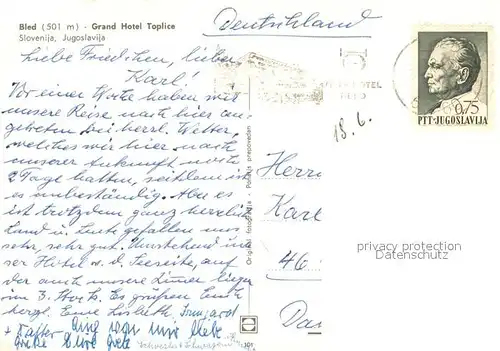 Bled (501 m) - Grand Hotel Toplice
Slovenija, Jugoslavija
Deutschland
Liebe Friedchen, lieber
Karl!
Vor einer Woche haben wir
unsere Reise nach hier an-
getreten bei herrl. Wetter,
welches wir hier nach
unserer Ankunft noch
2 Tage hatten, seitdem ist
es unbeständig. Aber es
ist trotzdem ganz herrlich
Land u. Leute gefallen uns
sehr, sehr gut. Umstehend un-
ser Hotel v. d. Seeseite, auf
der auch unsere Zimmer liegen
im 3. Stock. Es grüßen Euch
herzl. Eure Lisbeth, Irmgard
+ Walter
Liebe
Grete
Original fotografija • Ponatis prepovedan
101
HOTEL
BLED
0,75
PTT-JUGOSLAVIJA
18.6.
Herrn
Karl
46
privacy protection
AnsichtskartenVersand.com
Da